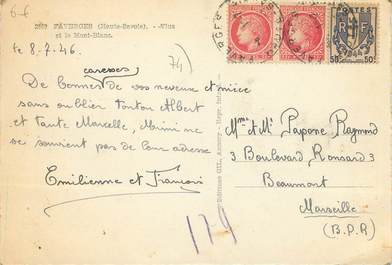 6-6
263 FAVERGES (Haute-Savoie). - Vue
et le Mont-Blanc.
le 8.7.46.
(74)
caresses
De bonnes de vos neveux et nièce
sans oublier tonton Albert
et tante Marcelle, Mimi ne
se souvient pas de leur adresse
Emilienne et François
Editions GIL, Annecy
179
POSTES
50c 50c
Mme et Mr Papone Raymond
3 Boulevard Ronsard 3
Beaumont
Marseille
(B.P.R)